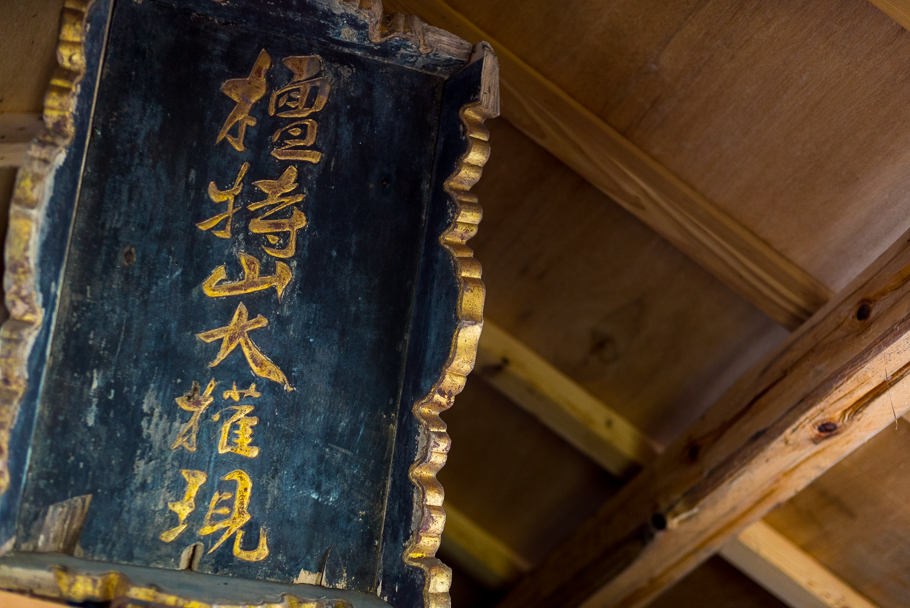 檀特山大權現